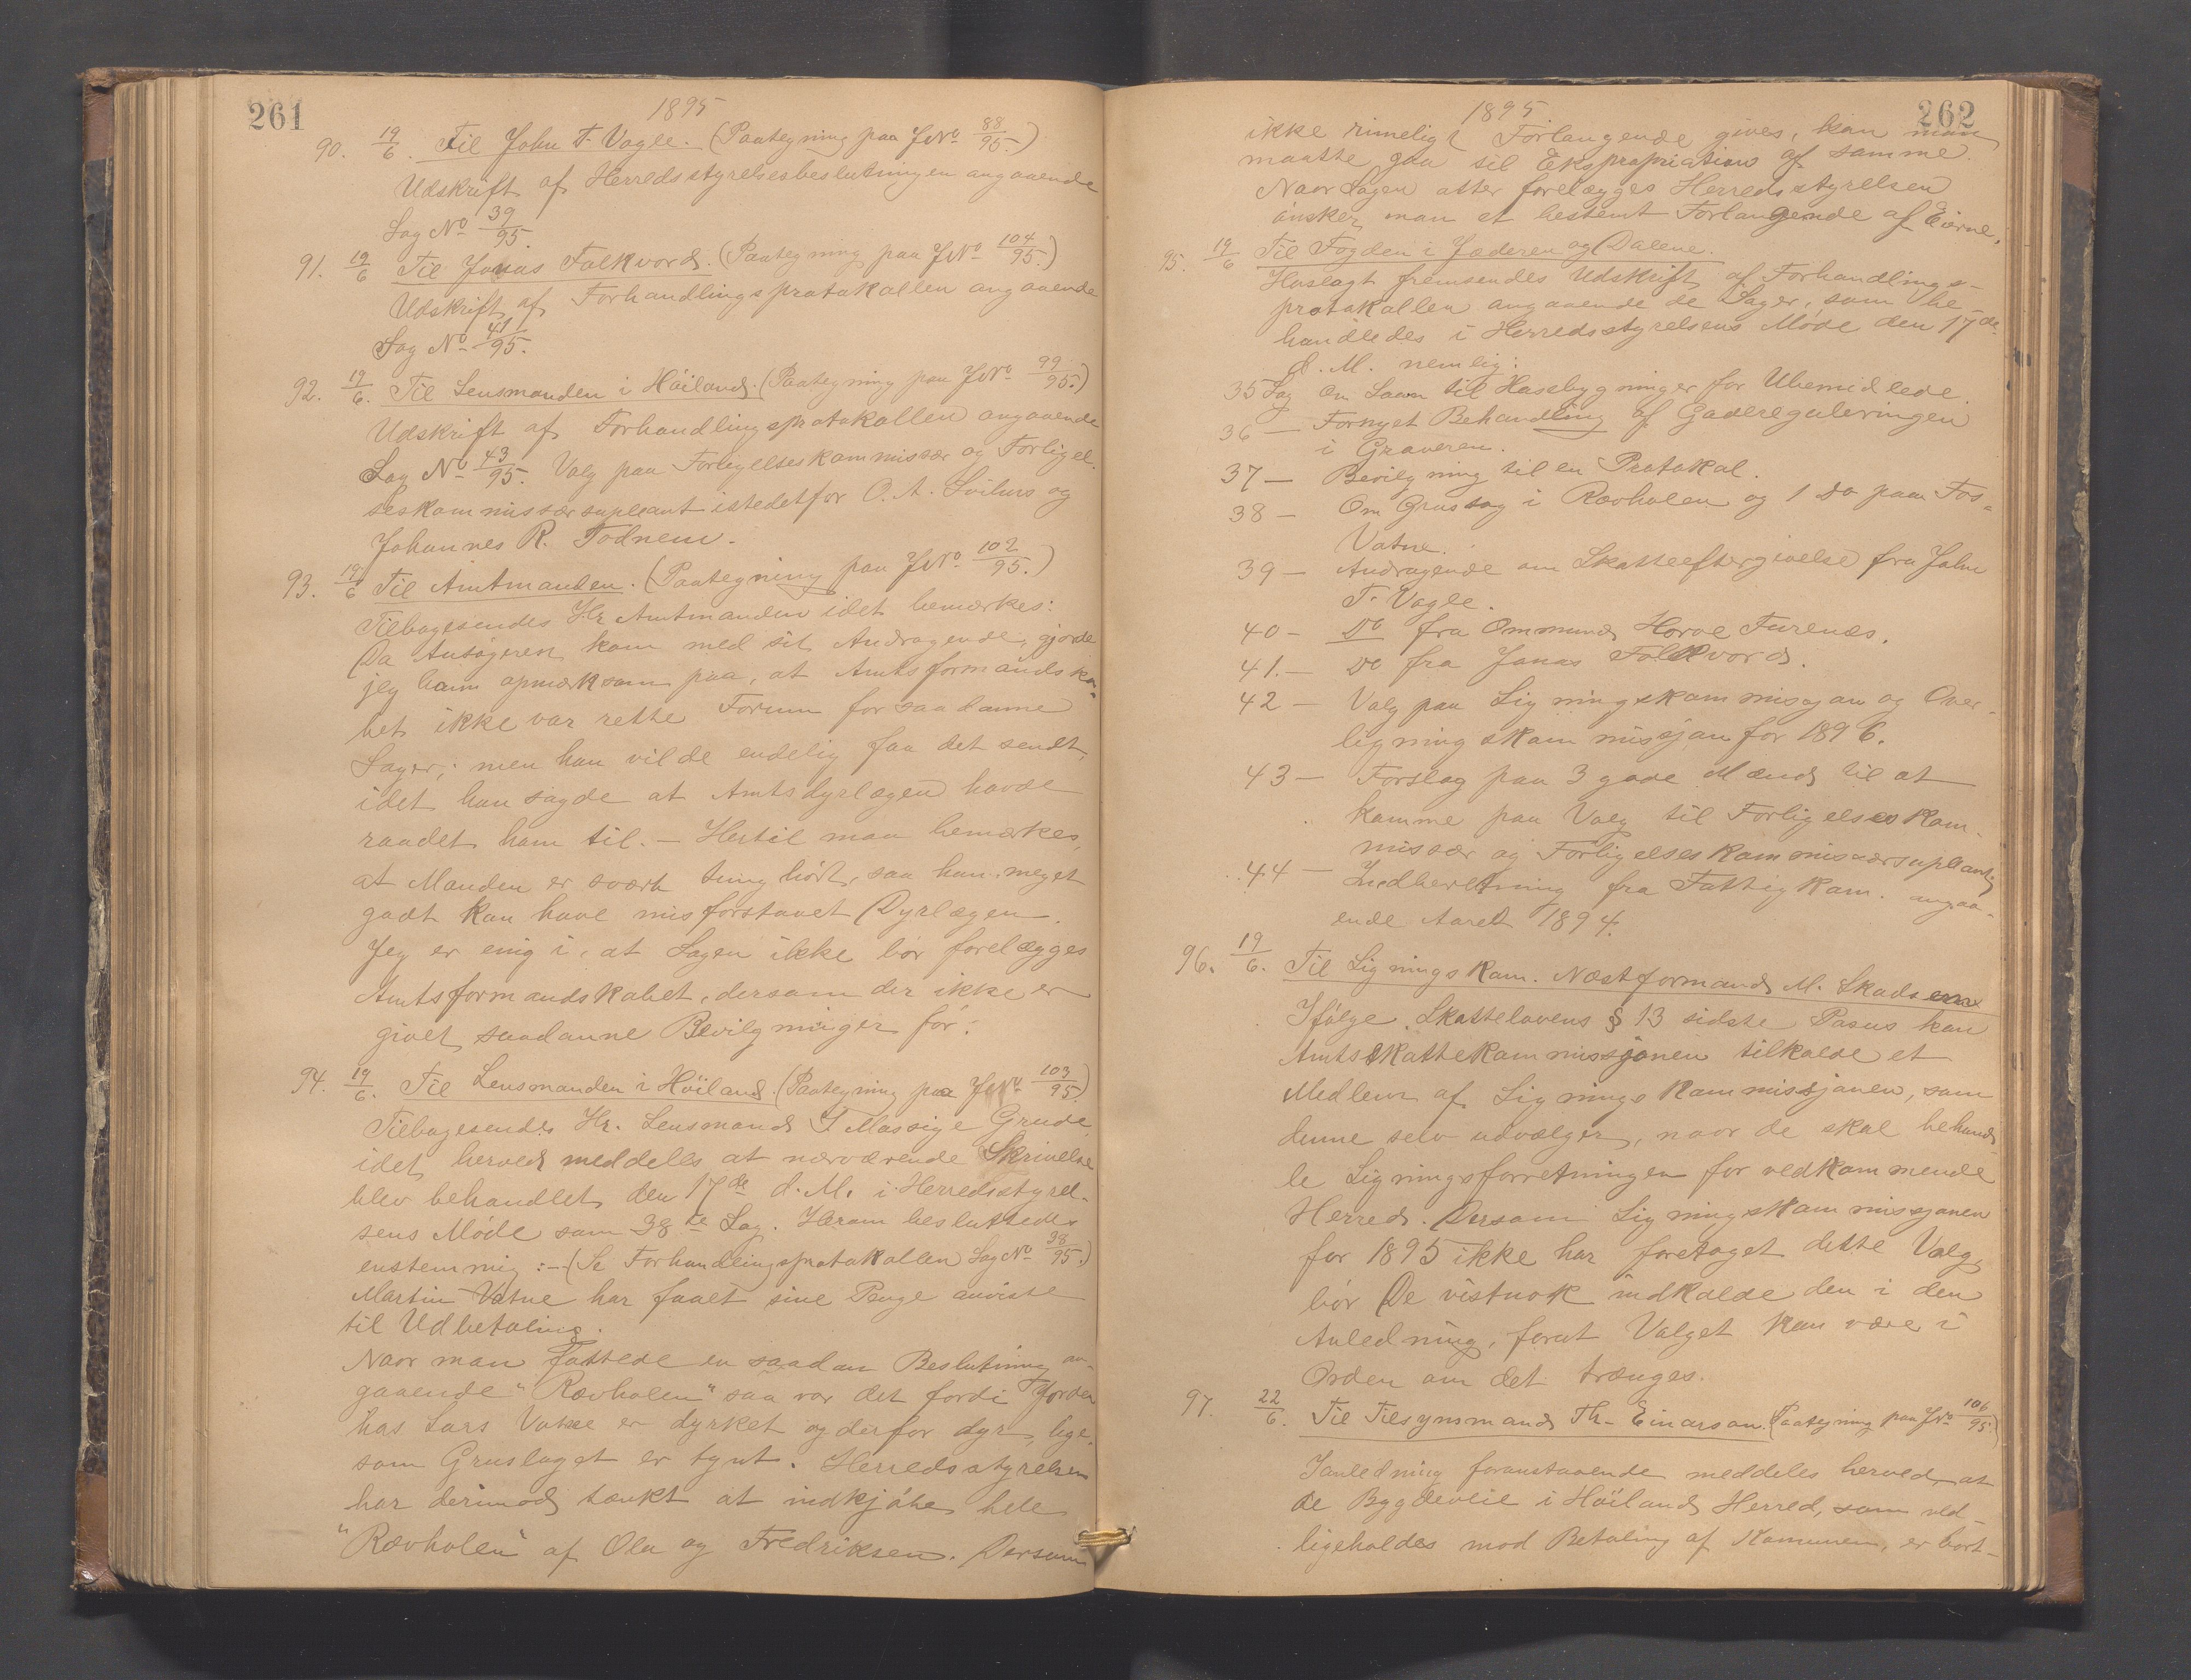 261
1895
90. 19/6. Til John T. Vagle. (Paategning paa J№ 88/95.)
Udskrift af Herredsstyrelsesbeslutningen angaaende
Sag № 39/95.
91. 19/6 Til Jonas Folkvord. (Paategning paa J№ 104/95.)
Udskrift af Forhandlingsprotokollen angaaende
Sag № 41/95.
92. 19/6. Til Lensmanden i Höiland. (Paategning paa J№ 99/95.)
Udskrift af Forhandlingsprotokollen angaaende
Sag № 43/95. Valg paa Forligelseskommissær og Forligel-
seskommissærsupleant istedetfor O. A. Soilurs og
Johannes R. Todnem.
93. 19/6 Til Amtmanden. (Paategning paa J№ 102/95.)
Tilbagesendes Hr Amtmanden idet bemærkes:
Da Ansögeren kom med sit Andragende, gjorde
jeg ham opmærksom paa, at Amtsformandska-
bet ikke var rette Forum for saadanne
Sager; men han vilde endelig faa det sendt,
idet han sagde at Amtsdyrlægen havde
raadet ham til. – Hertil maa bemærkes,
at Manden er svært tunghört, saa han meget
godt kan have misforstaaet Dyrlægen.
Jeg er enig i, at Sagen ikke bör forelægges
Amtsformandskabet, dersom der ikke er
givet saadanne Bevilgninger för.
94. 19/6. Til Lensmanden i Höiland. (Paategning paa J№ 103/95.)
Tilbagesendes Hr. Lensmand T. Massige Grude,
idet herved meddeles at nærværende Skrivelse
blev behandlet den 17de d. M. i Herredsstyrel-
sens Möde som 38te Sag. Herom besluttedes
enstemmig: – (Se Forhandlingsprotokollen Sag № 38/95.)
Martin Vatne har faaet sine Penge anviste
til Udbetaling.
Naar man fattede en saadan Beslutning an-
gaaende "Rævholen" saa var det fordi Jorden
hos Lars Vatne er dyrket og derfor dyr, lige-
som Gruslaget er tynt. Herredsstyrelsen
har derimod tænkt at indkjöbe hele
"Rævholen" af Ola og Fredriksen. Dersom
262
1895
ikke rimeligt Forlangende gives, kan man
maatte gaa til Ekspropriation af samme.
Naar Sagen atter forelægges Herredsstyrelsen
önsker man et bestemt Forlangende af Eierne.
95. 19/6 Til Fogden i Jæderen og Dalene.
Hoslagt fremsendes Udskrift af Forhandlings-
protokollen angaaende de Sager, som be-
handledes i Herredsstyrelsens Möde den 17de
d. M. nemlig:
35 Sag Om Laan til Husebygninger for Ubemidlede.
36 – Fornyet Behandling af Gadereguleringen
i Graveren.
37 – Bevilgning til en Protokol.
38 – Om Grustag i Rævholen og 1 do paa Fos-
Vatne.
39 – Andragende om Skatteeftergivelse fra John
T. Vagle.
40 – Do fra Ommund Hove Furenæs.
41. – Do fra Jonas Folkvord.
42 – Valg paa Ligningskommissjon og Over-
ligningskommissjon for 1896.
43 – Forslag paa 3 gode Mænd til at
komme paa Valg til Forligelseskom-
missær og Forligelseskommissærsupleant
44 – Indberetning fra Fattigkom. angaa-
ende Aaret 1894.
96. 19/6. Til Ligningskom. Næstformand M. Skadsem
Ifölge Skattelovens § 13 sidste Pasus kan
Amtsskattekommissjonen tilkalde et
Medlem af Ligningskommissjonen, som
denne selv udvælger, naar de skal behand-
le Ligningsforretningen for vedkommende
Herred. Dersom Ligningskommissjonen
for 1895 ikke har foretaget dette Valg,
bör De vistnok indkalde den i den
Anledning, forat Valget kan være i
Orden om det trænges.
97. 22/6. Til Tilsynsmand Th. Einarson. (Paategning paa J№ 106/95.)
I anledning foranstaaende meddeles herved, at
de Bygdeveie i Höiland Herred, som ved-
ligeholdes mod Betaling af Kommunen, er bort-